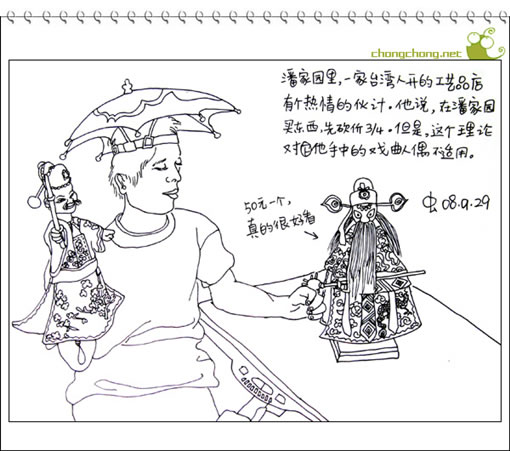 chongchong.net
潘家园里,一家台湾人开的工艺品店
有个热情的伙计。他说,在潘家园
买东西,先砍价3/4。但是,这个理论
对他手中的戏曲人偶不适用。
50元一个,
真的很好看
虫08.9.29